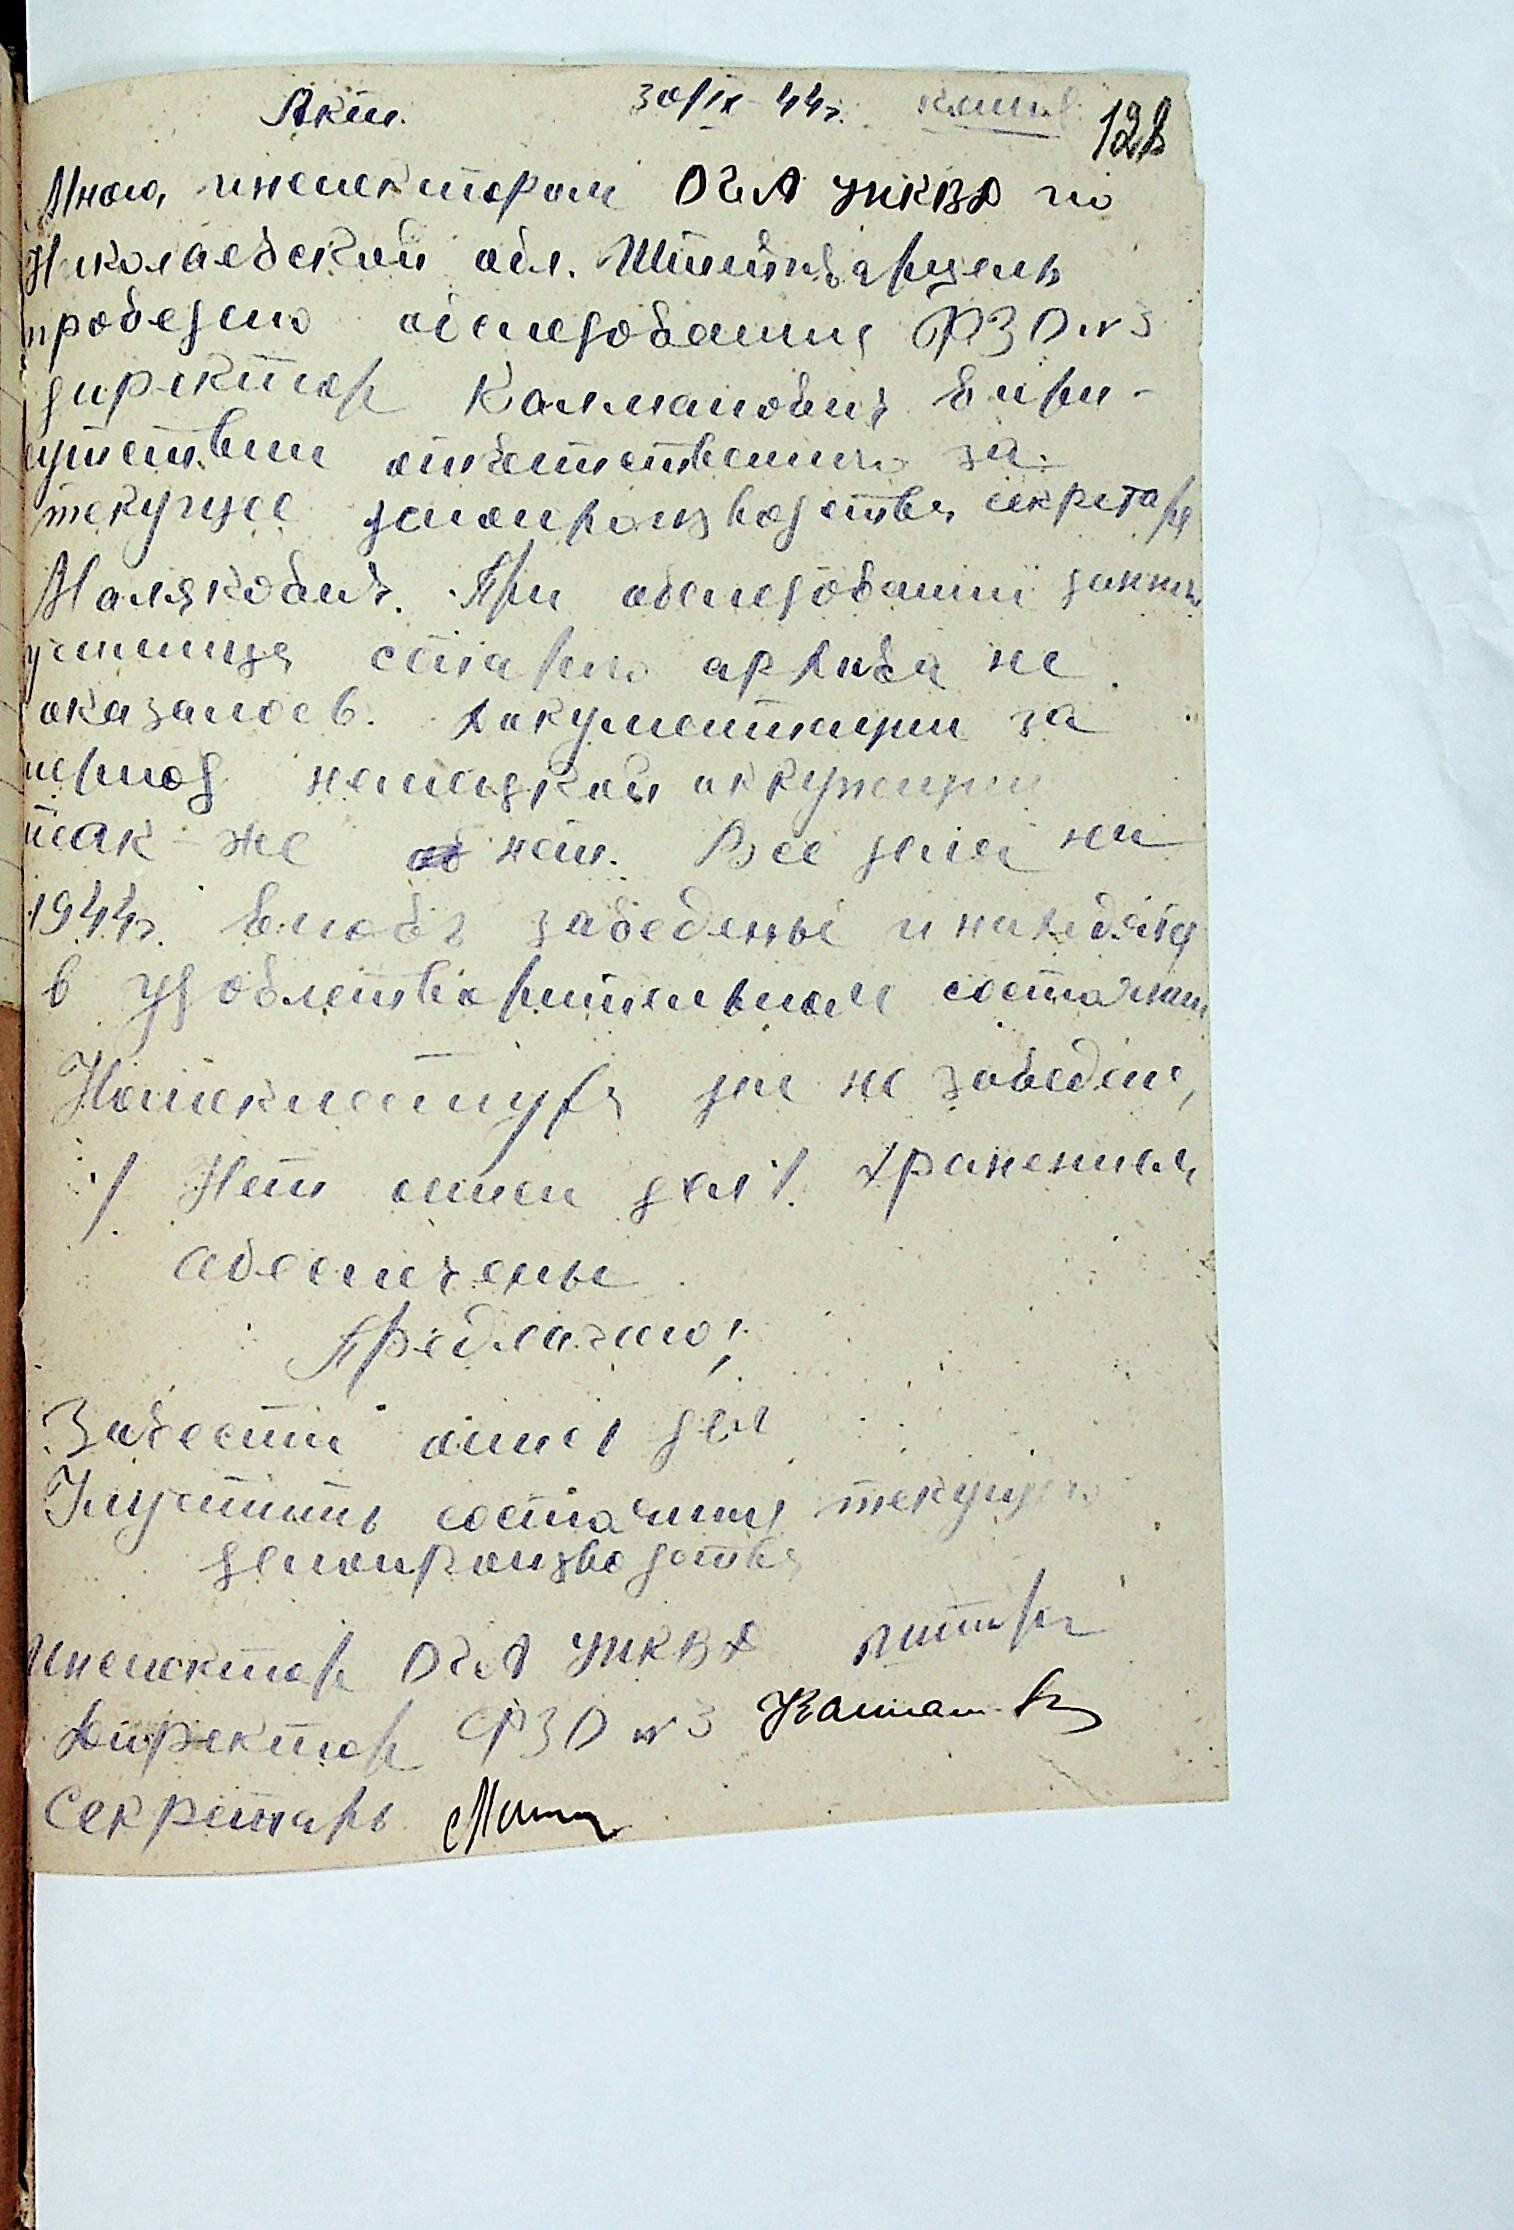 Акт. 30/IX-44г. 128
Мною, инспектором ОГА УНКВД по
Николаевской обл. Штейнварцель
проведено обследование ФЗО №3
директор Калманович в при-
сутствии ответственного за
текущее делопроизводства секретаря
Малякович. При обследовании данны
училища старого архива не
оказалось. Документации за
период немецкой оккупации
так-же нет. Все дела на
1944г. вновь заведены и находятся
в удовлетворительном состоянии
Номенклатура дел не заведена,
/ Нет описи дел /. Хранением
обеспечены
Предлагаю:
Завести опись дел
Улучшить состояние текущего
делопроизводства
Инспектор ОГА УНКВД
Директор ФЗО №3
Секретарь